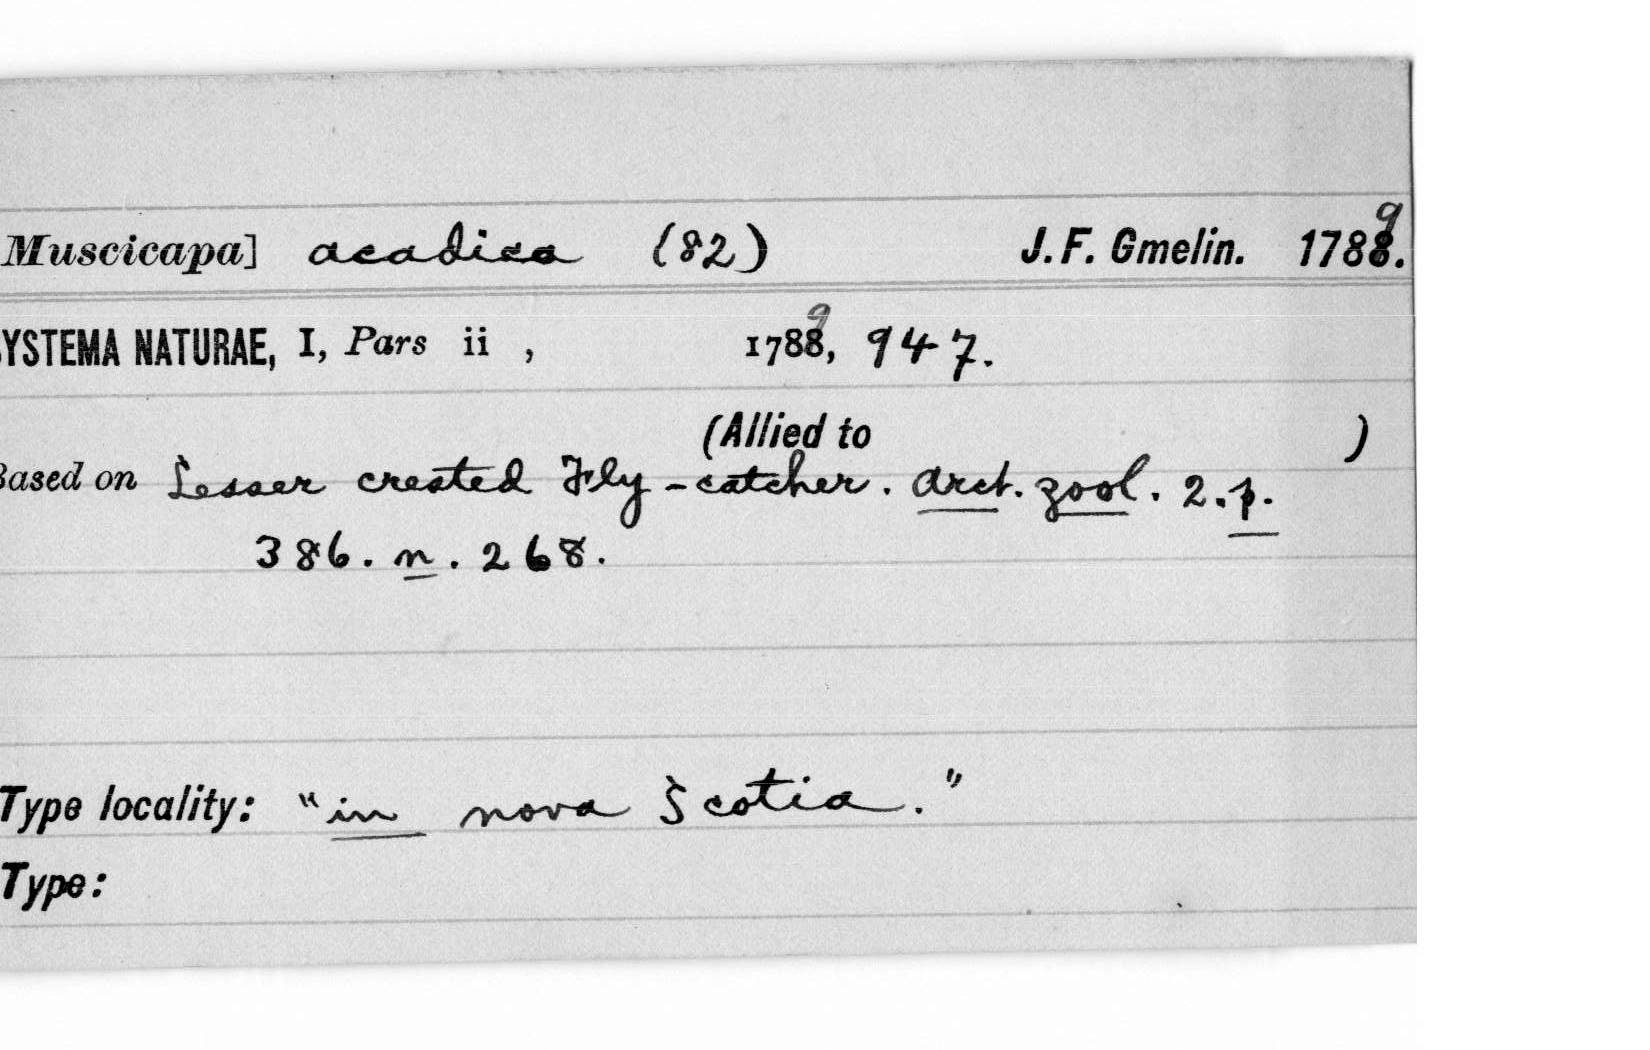 Muscicapa] acadica (82) J. F. Gmelin. 1789.
YSTEMA NATURAE, I, Pars ii , 1789, 947.
(Allied to )
Based on Lesser crested Fly-catcher. Arct. zool. 2. p.
386. n. 268.
Type locality: "in nova Scotia."
Type: